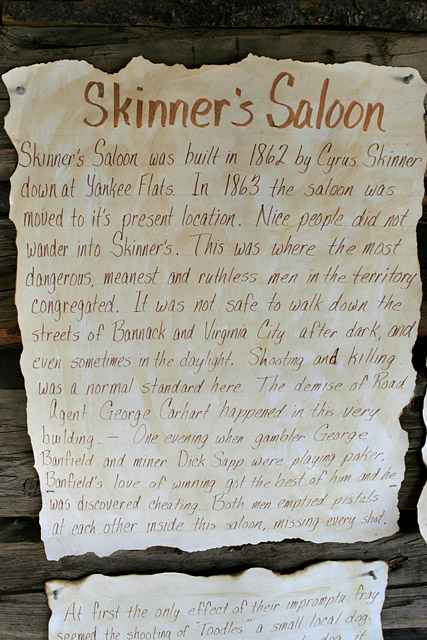 Skinner's Saloon
Skinner's Saloon was built in 1862 by Cyrus Skinner
down at Yankee Flats. In 1863 the saloon was
moved to it's present location. Nice people did not
wander into Skinner's. This was where the most
dangerous, meanest and ruthless men in the territory
congregated. It was not safe to walk down the
streets of Bannack and Virginia City after dark, and
even sometimes in the daylight. Shooting and killing
was a normal standard here. The demise of Road
Agent George Carhart happened in this very
building. — One evening when gambler George
Banfield and miner Dick Sapp were playing poker,
Banfield's love of winning got the best of him and he
was discovered cheating. Both men emptied pistols
at each other inside this saloon, missing every shot.
At first the only effect of their impromptu fray
seemed the shooting of "Toodles" a small local dog.